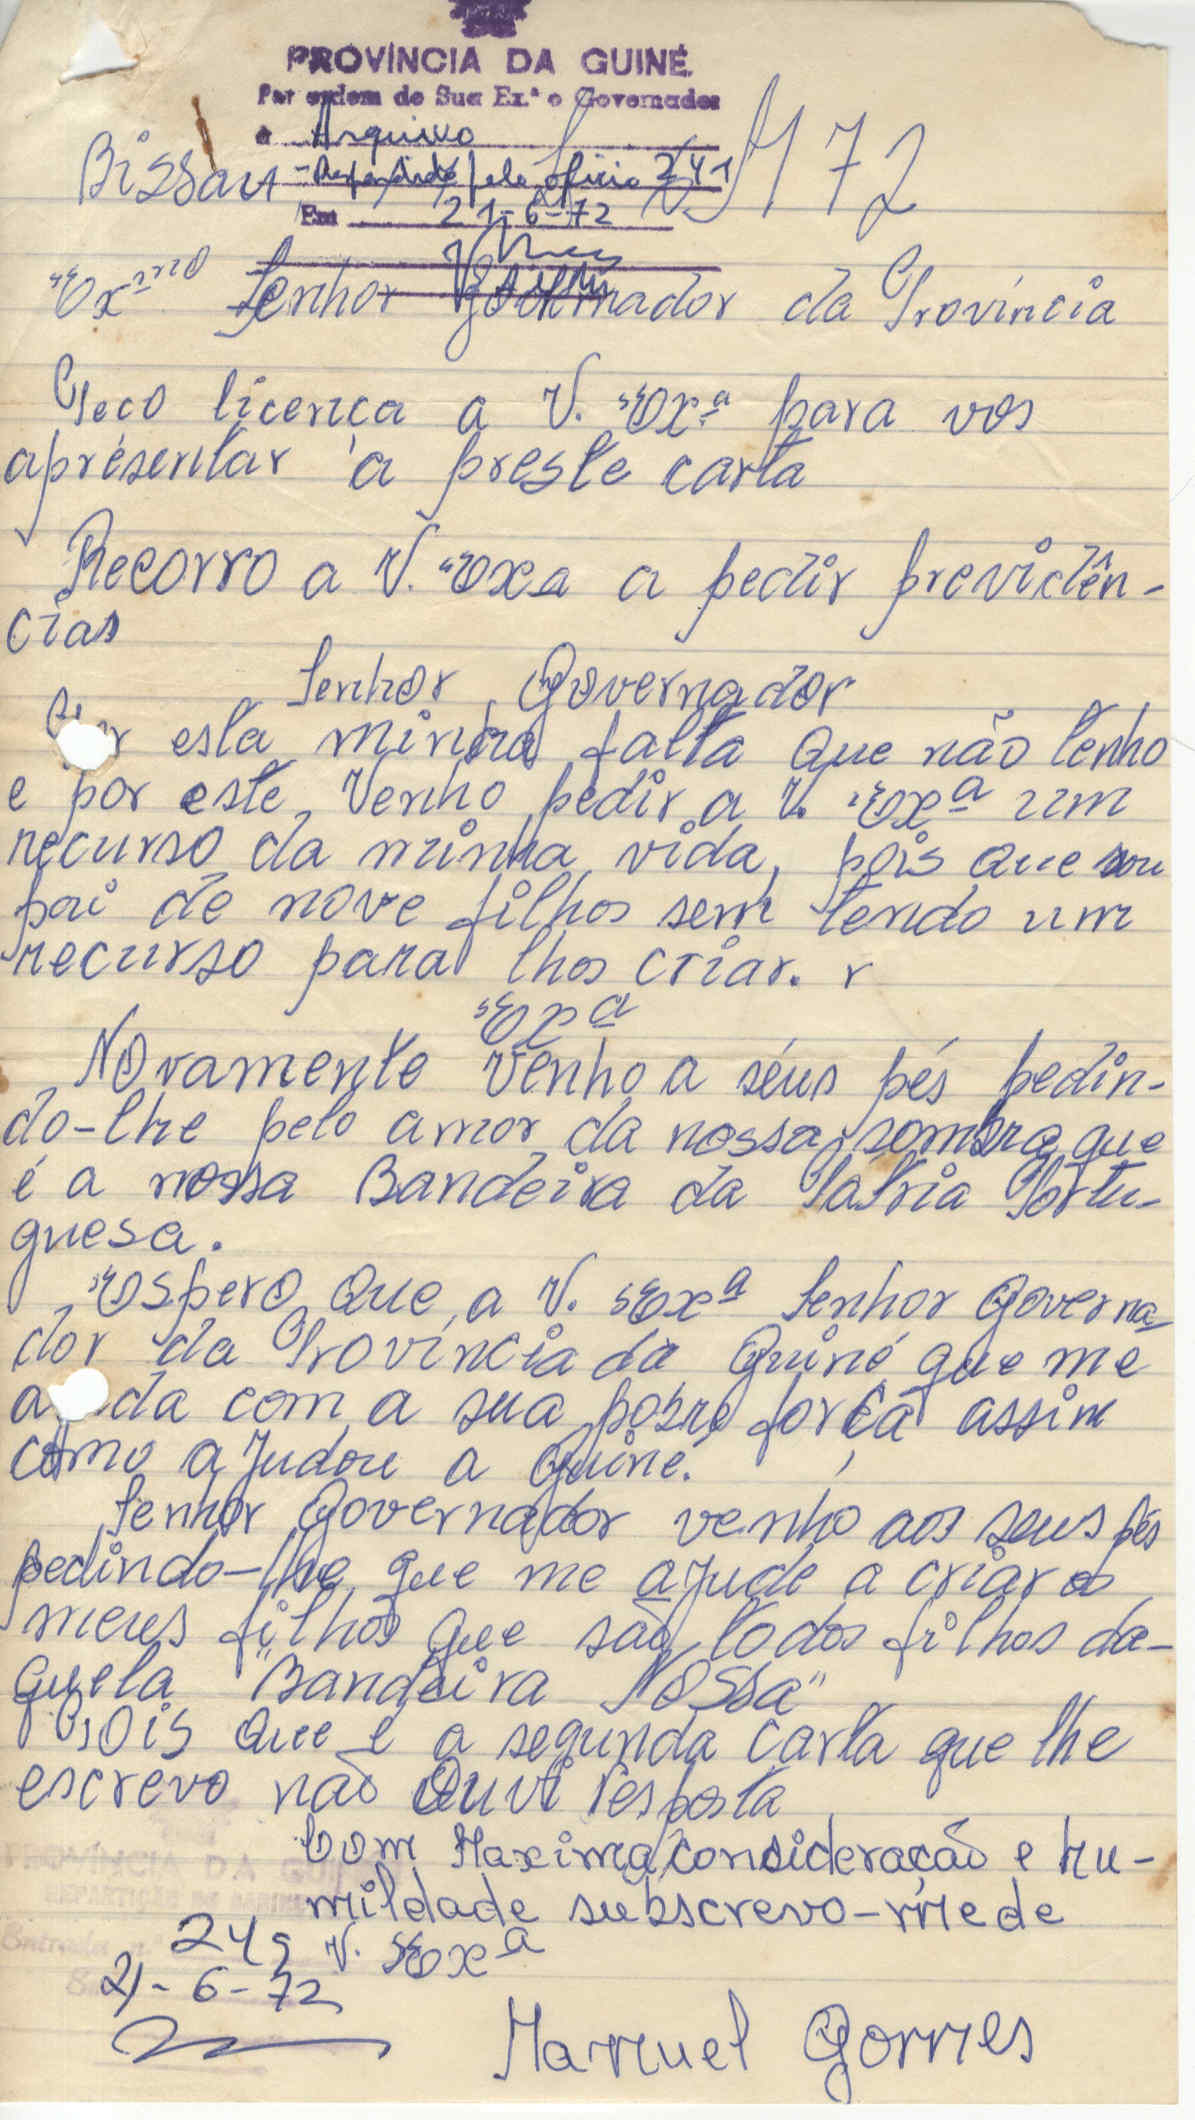 PROVÍNCIA DA GUINÉ
Por ordem de Sua Ex.ª o Governador
a Arquivo
- Respondido pelo ofício 241
Bissau 72
Em 21-6-72
Exmo Senhor Governador da Província
Peço licença a V. Exª para vos
apresentar a preste carta
Recorro a V. Exa a pedir previdên-
cias
Senhor Governador
esta minha falta que não tenho
e por este venho pedir a V. Exª um
recurso da minha vida, pois que sou
pai de nove filhos sem tendo um
recurso para lhos criar. r
Exª
Novamente venho a séus pés pedin-
do-lhe pelo amor da nossa sombra que
é a nossa Bandeira da Pátria Portu-
guesa.
Espero que a V. Exª Senhor Governa-
dor da Província da Guiné que me
ajuda com a sua pobre força assim
como ajudou a Guiné.
Senhor Governador venho aos seus pés
pedindo-lhe que me ajude a criar os
meus filhos que são todos filhos da-
quela "Bandeira Nossa"
Pois que é a segunda carta que lhe
escrevo não ouvi resposta
Com Maxima consideração e hu-
mildade subscrevo-me de
V. Exª
PROVÍNCIA DA GUINÉ
REPARTIÇÃO DO GABINETE
Entrada n.º 249
21-6-72
Manuel Gomes